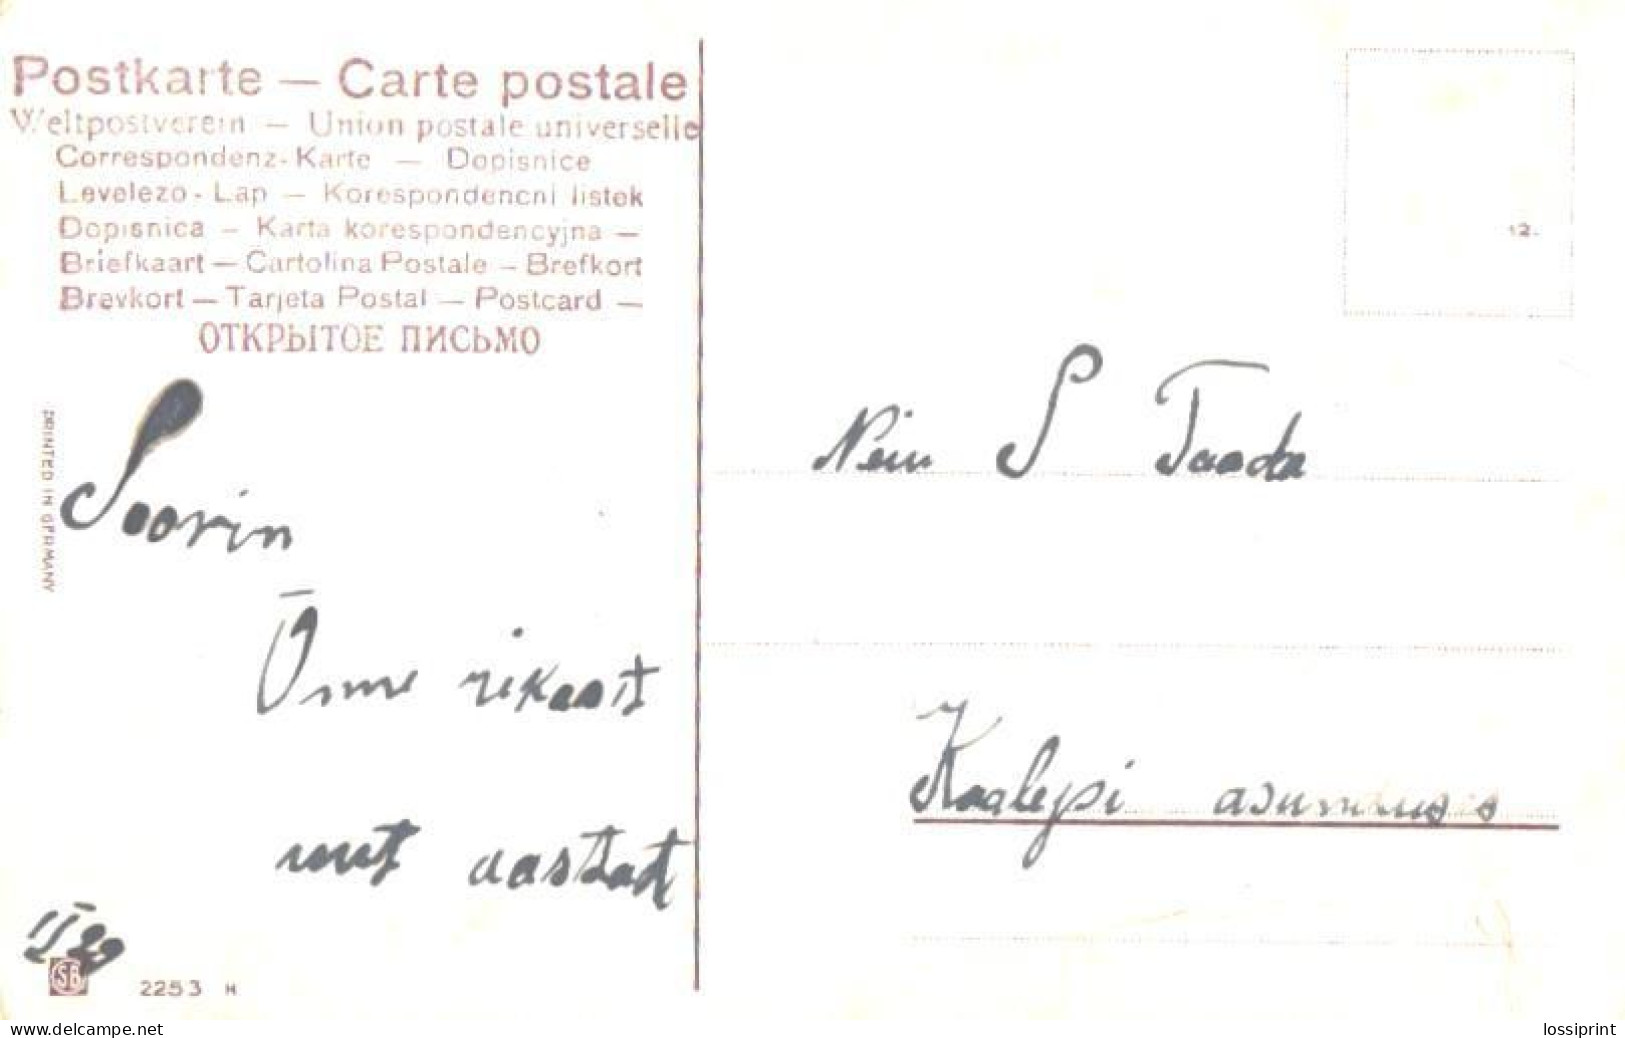 Postkarte — Carte postale
Weltpostverein — Union postale universelle
Correspondenz-Karte — Dopisnice
Levelezo-Lap — Korespondencni listek
Dopisnica — Karta korespondencyjna —
Briefkaart — Cartolina Postale — Brefkort
Brevkort — Tarjeta Postal — Postcard —
ОТКРЫТОЕ ПИСЬМО
PRINTED IN GERMANY
Soovin
Õnne rikast
uut aastat
I/I 20
SB
2253 H
12.
Neiu S Taada
Kaalepi asunduses
www.delcampe.net
lossiprint